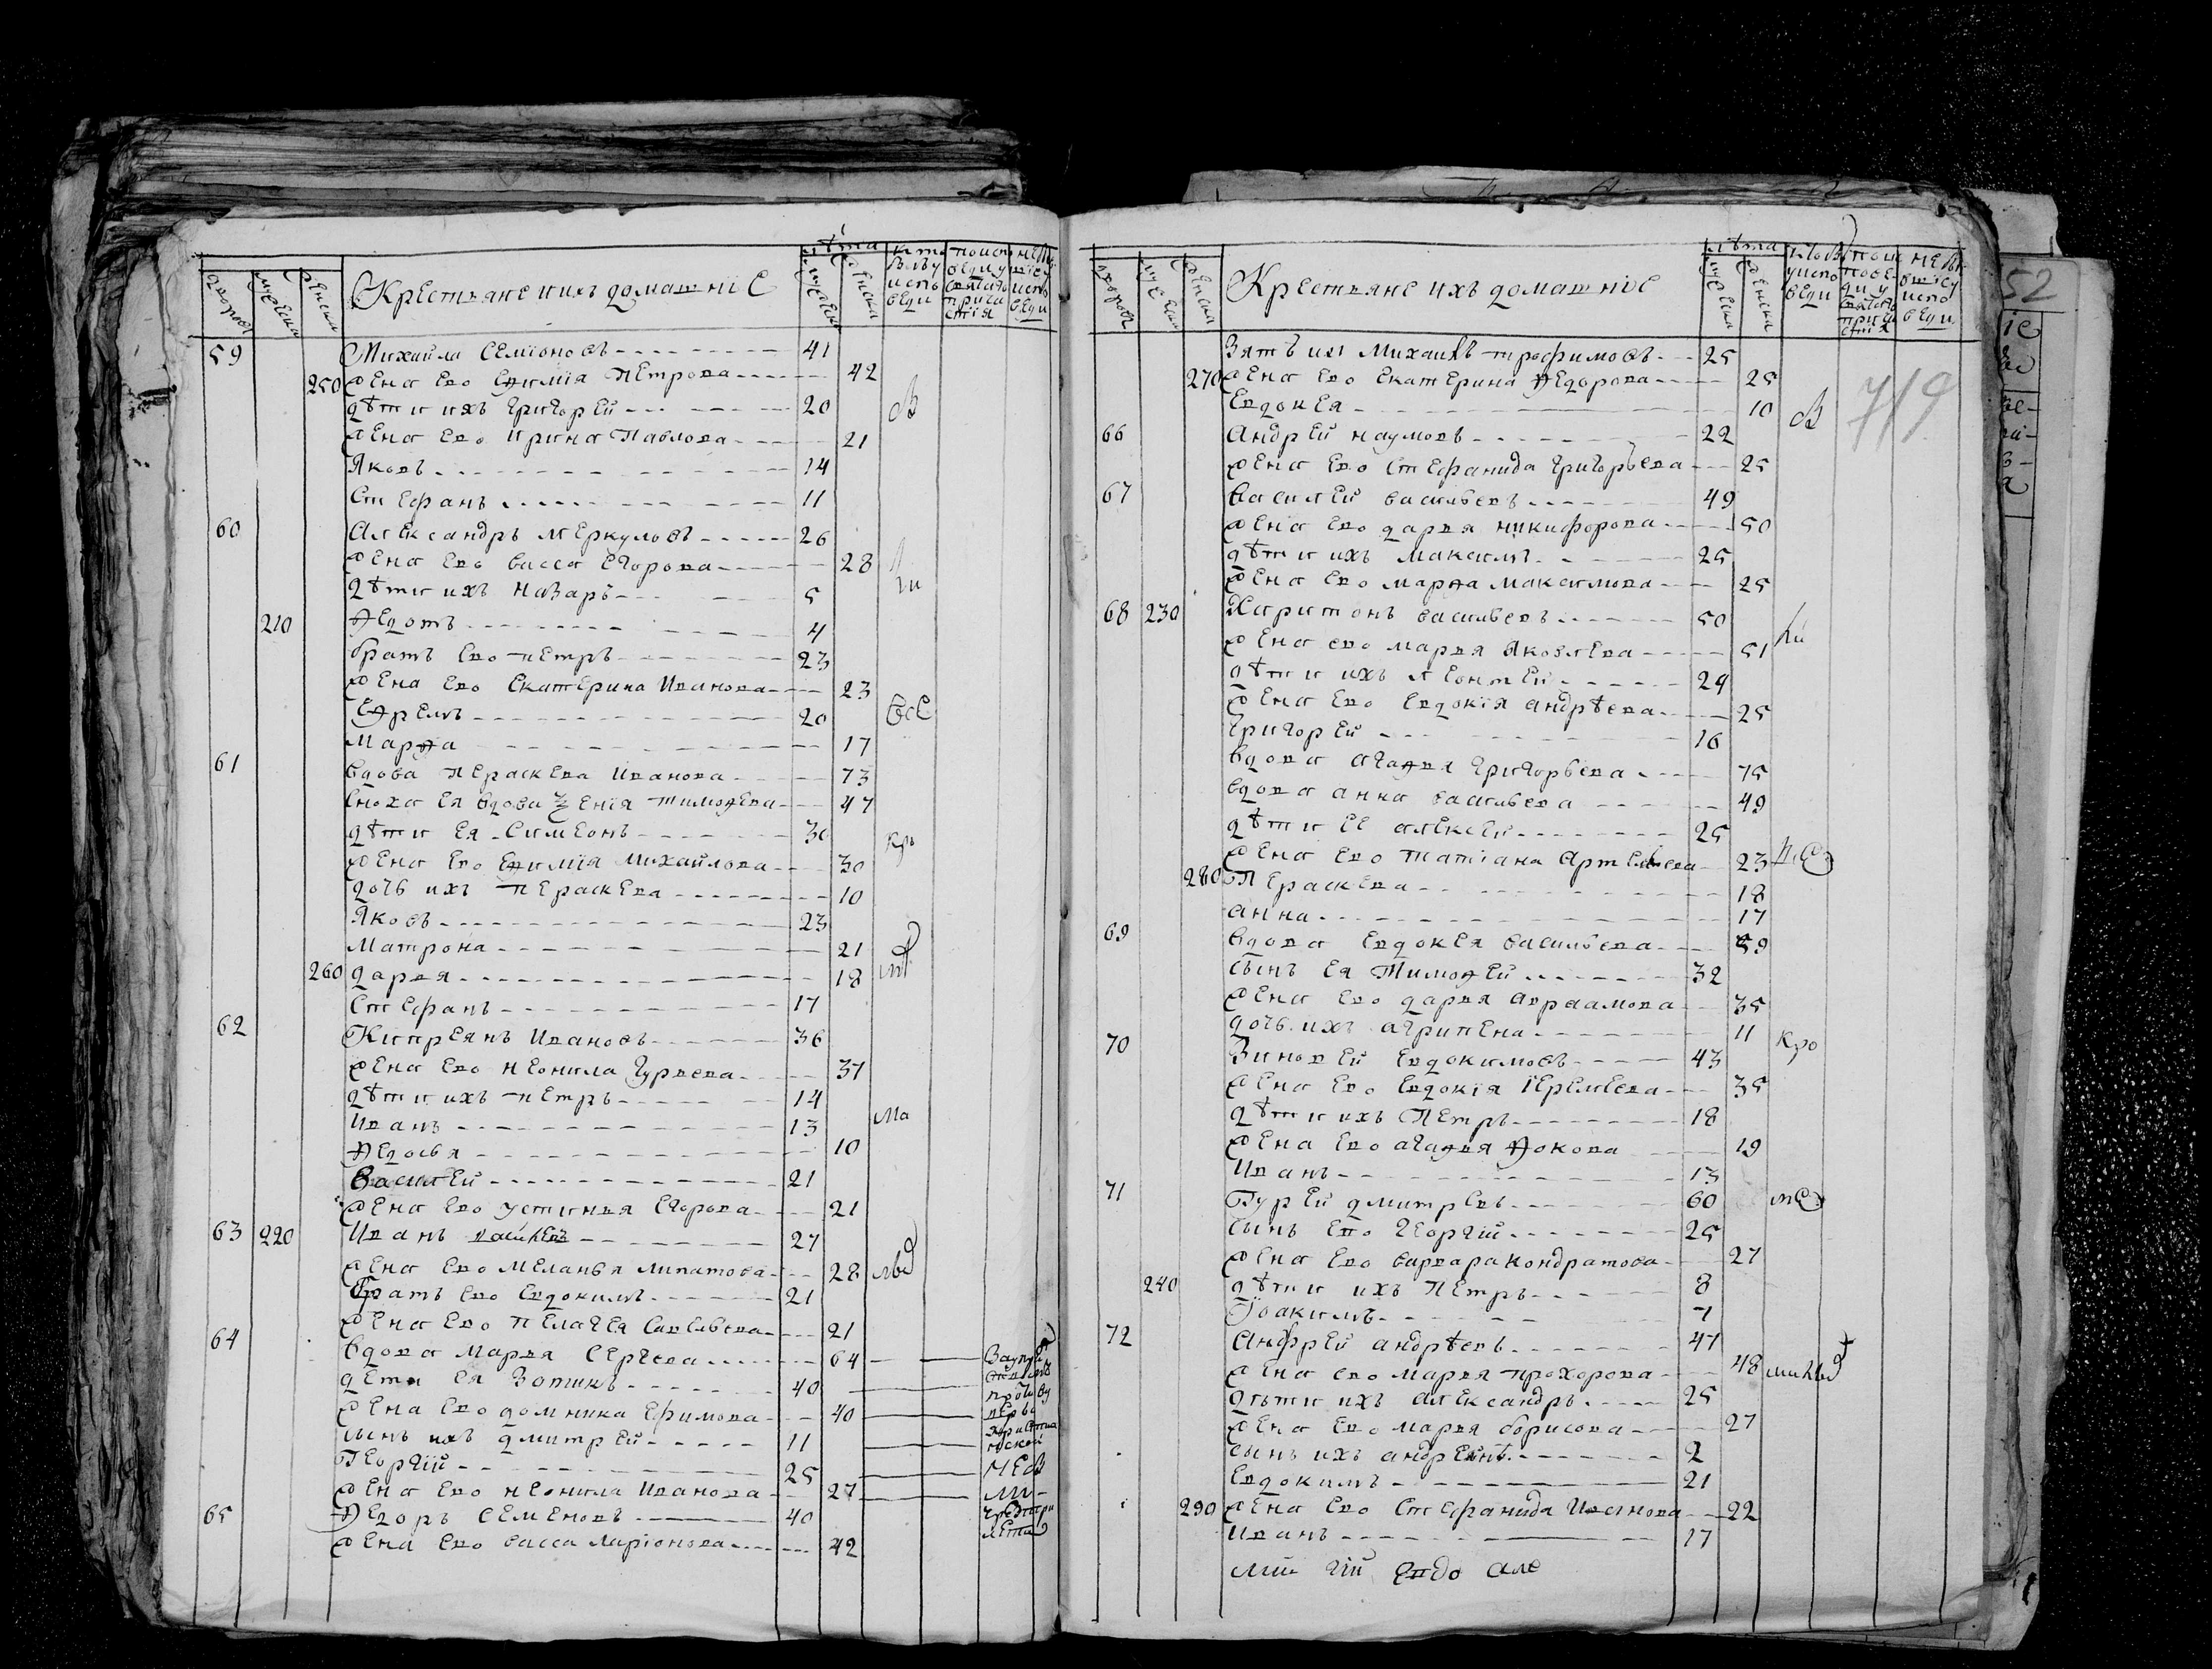 дворовъ мужеска женска Крестьяне и ихъ домашніе лѣта мужеска женска
59 Михайла Семіоновъ 41
250 жена ево Еѳимія Петрова 42
дѣти ихъ Григорей 20
жена ево Ирина Павлова 21
Яковъ 14
Стефанъ 11
60 Александръ Меркуловъ 26
жена ево Васса Егорова 28
дѣти ихъ Назаръ 5
210 Ѳедотъ 4
братъ ево Петръ 23
жена ево Екатерина Иванова 23
Еѳремъ 20 все
Марѳа 17
61 вдова Пераскева Иванова 73
сноха ея вдова Ѯенія Тимоѳева 47
дѣти ея Симеонъ 30
жена ево Еѳимія Михайлова 30
дочь ихъ Пераскева 10
Яковъ 23
Матрона 21
260 Дарья 18
Стефанъ 17
62 Кипреянъ Ивановъ 36
жена ево Неонила Гурьева 37
дѣти ихъ Петръ 14
Иванъ 13 ма
Ѳедосья 10
Василей 21
жена ево Устинья Егорова 21
63 220 Иванъ 27
жена ево Меланья Липатова 28
братъ ево Евдокимъ 21
жена ево Пелагея Савельева 21
64 вдова Марья Сергеева 64
дети ея Зотикъ 40
жена ево Домника Ефимова 40
сынъ ихъ Дмитрей 11
Георгій 25
жена ево Неонила Иванова 27
65 Ѳедоръ Семеновъ 40
жена ево Васса Ларіонова 42
дворовъ мужеска женска Крестьяне ихъ домашніе лѣта мужеска женска
719
Зять их Михаилъ Трофимовъ 25
270 жена ево Екатерина Ѳедорова 25
Евдокея 10
66 Андрей Наумовъ 22
жена ево Стефанида Григорьева 25
67 Василей Васильевъ 49
жена ево Дарья Никифорова 50
дѣти ихъ Максимъ 25
жена ево Марѳа Максимова 25
68 230 Харитонъ Васильевъ 50
жена ево Марья Яковлева 51
дѣти ихъ Леонтей 24
жена ево Евдокія Андрѣева 25
Григорей 16
вдова Агаѳья Григорьева 75
вдова Анна Васильева 49
дѣти ее Алексей 25
жена ево Татіана Артемьева 23
280 Пераскева 18
Анна 17
69 вдова Евдокея Васильева 59
сынъ ея Тимоѳей 32
жена ево Дарья Авраамова 35
дочь ихъ Агрипена 11
70 Зиновей Евдокимовъ 43 кро
жена ево Евдокія Іеремеева 35
дѣти ихъ Петръ 18
жена ево Агаѳья Ѳокова 19
Иванъ 13
71 Гурей Дмитревъ 60
сынъ ево Георгій 25
жена ево Варвара Кондратова 27
240 дѣти ихъ Петръ 8
Іоакимъ 7
72 Андрей Андрѣевъ 47
жена ево Марья Прохорова 48
дѣти ихъ Александръ 25
жена ево Марья Борисова 27
сынъ ихъ Андреянъ 2
Евдокимъ 21
290 жена ево Стефанида Иванова 22
Иванъ 17
52